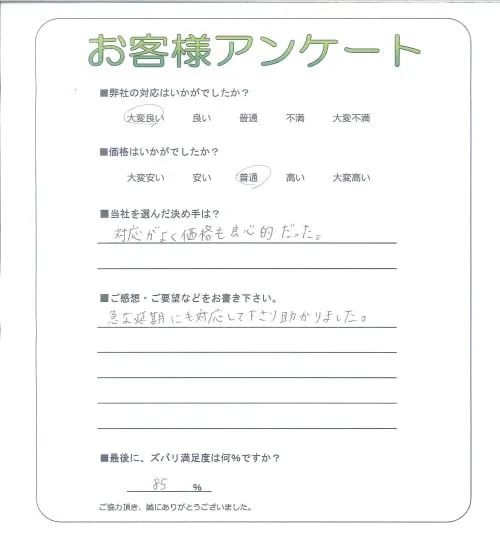 お客様アンケート
■弊社の対応はいかがでしたか？
大変良い 良い 普通 不満 大変不満
■価格はいかがでしたか？
大変安い 安い 普通 高い 大変高い
■当社を選んだ決め手は？
対応がよく価格も良心的だった。
■ご感想・ご要望などをお書き下さい。
急な延期にも対応して下さり助かりました。
■最後に、ズバリ満足度は何%ですか？
85 %
ご協力頂き、誠にありがとうございました。